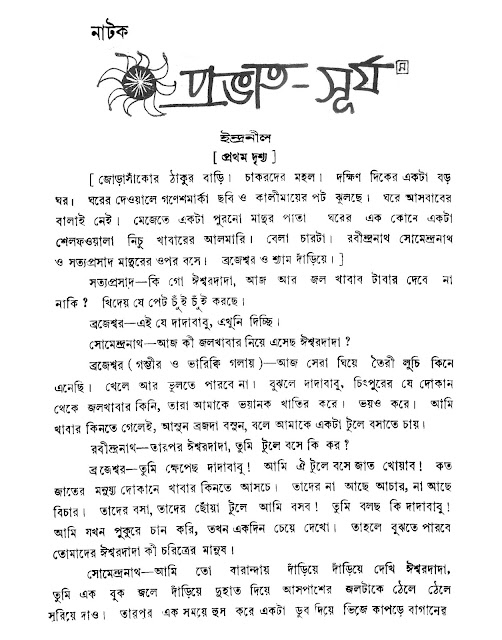 নাটক
প্রভাত-সূর্য
ইন্দ্রনীল
[ প্রথম দৃশ্য ]
[ জোড়াসাঁকোর ঠাকুর বাড়ি। চাকরদের মহল। দক্ষিণ দিকের একটা বড়
ঘর। ঘরের দেওয়ালে গণেশমার্কা ছবি ও কালীমায়ের পট ঝুলছে। ঘরে আসবাবের
বালাই নেই। মেজেতে একটা পুরনো মাদুর পাতা ঘরের এক কোনে একটা
শেলফওয়ালা নিচু খাবারের আলমারি। বেলা চারটা। রবীন্দ্রনাথ সোমেন্দ্রনাথ
ও সত্যপ্রসাদ মাদুরের ওপর বসে। ব্রজেশ্বর ও শ্যাম দাঁড়িয়ে। ]
সত্যপ্রসাদ—কি গো ঈশ্বরদাদা, আজ আর জল খাবাব টাবার দেবে না
নাকি? খিদেয় যে পেট চুঁই চুঁই করছে।
ব্রজেশ্বর—এই যে দাদাবাবু, এখুনি দিচ্ছি।
সোমেন্দ্রনাথ—আজ কী জলখাবার নিয়ে এসেছ ঈশ্বরদাদা?
ব্রজেশ্বর (গম্ভীর ও ভারিক্কি গলায়)—আজ সেরা ঘিয়ে তৈরী লুচি কিনে
এনেছি। খেলে আর ভুলতে পারবে না। বুঝলে দাদাবাবু, চিৎপুরের যে দোকান
থেকে জলখাবার কিনি, তারা আমাকে ভয়ানক খাতির করে। ভয়ও করে। আমি
খাবার কিনতে গেলেই, আসুন ব্রজদা বসুন, বলে আমাকে একটা টুলে বসাতে চায়।
রবীন্দ্রনাথ—তারপর ঈশ্বরদাদা, তুমি টুলে বসে কি কর?
ব্রজেশ্বর—তুমি ক্ষেপেছ দাদাবাবু! আমি ঐ টুলে বসে জাত খোয়াব! কত
জাতের মনুষ্য দোকানে খাবার কিনতে আসচে। তাদের না আছে আচার, না আছে
বিচার। তাদের বসা, তাদের ছোঁয়া টুলে আমি বসব! তুমি বলছ কি দাদাবাবু!
আমি যখন পুকুরে চান করি, তখন একদিন চেয়ে দেখো। তাহলে বুঝতে পারবে
তোমাদের ঈশ্বরদাদা কী চরিত্রের মানুষ।
সোমেন্দ্রনাথ—আমি তো বারান্দায় দাঁড়িয়ে দাঁড়িয়ে দেখি ঈশ্বরদাদা,
তুমি এক বুক জলে দাঁড়িয়ে দুহাত দিয়ে আসপাশের জলটাকে ঠেলে ঠেলে
সরিয়ে দাও। তারপর এক সময়ে হুস করে একটা ডুব দিয়ে ভিজে কাপড়ে বাগানের